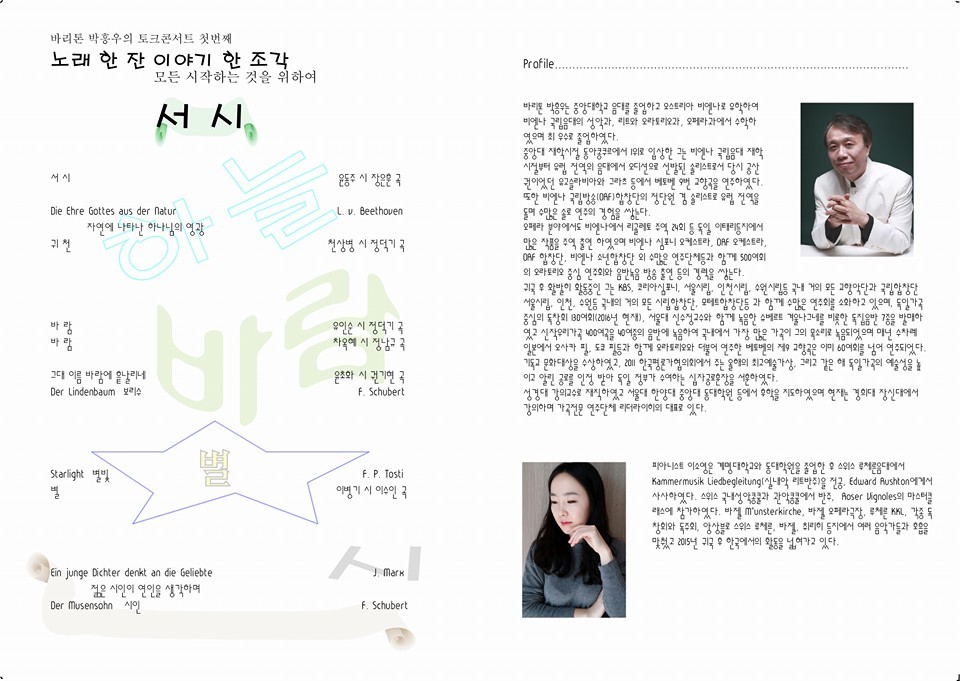 바리톤 박흥우의 토크콘서트 첫번째
노래 한 잔 이야기 한 조각
모든 시작하는 것을 위하여
서 시
하늘
서 시 윤동주 시 장은훈 곡
Die Ehre Gottes aus der Natur L. v. Beethoven
자연에 나타난 하나님의 영광
귀 천 천상병 시 정덕기 곡
바람
바 람 유인순 시 정덕기 곡
바 람 차옥혜 시 정남규 곡
그대 이름 바람에 흩날리네 윤초화 시 권기현 곡
Der Lindenbaum 보리수 F. Schubert
별
Starlight 별빛 F. P. Tosti
별 이병기 시 이수인 곡
시
Ein junge Dichter denkt an die Geliebte J. Marx
젊은 시인이 연인을 생각하며
Der Musensohn 시인 F. Schubert
Profile
바리톤 박흥우는 중앙대학교 음대를 졸업하고 오스트리아 비엔나로 유학하여
비엔나 국립음대의 성악과, 리트와 오라토리오과, 오페라과에서 수학하
였으며 최 우수로 졸업하였다.
중앙대 재학시절 동아콩쿠르에서 1위로 입상한 그는 비엔나 국립음대 재학
시절부터 유럽 전역의 음대에서 오디션으로 선발된 솔리스트로서 당시 공산
권이었던 유고슬라비아와 그라츠 등에서 베토벤 9번 교향곡을 연주하였다.
또한 비엔나 국립방송(ORF)합창단의 정단원 겸 솔리스트로 유럽 전역을
돌며 수많은 솔로 연주의 경험을 쌓는다.
오페라 분야에서도 비엔나에서 리골레토 주역 24회 등 독일 이태리등지에서
많은 작품을 주역 출연 하였으며 비엔나 심포니 오케스트라, ORF 오케스트라,
ORF 합창단, 비엔나 소년합창단 외 수많은 연주단체들과 함께 500여회
의 오라토리오 중심 연주회와 음반녹음 방송 출연 등의 경력을 쌓는다.
귀국 후 활발히 활동중인 그는 KBS, 코리아심포니, 서울시립, 인천시립, 수원시립등 국내 거의 모든 교향악단과 국립합창단
서울시립, 인천, 수원등 국내의 거의 모든 시립합창단, 모테트합창단등 과 함께 수많은 연주회를 소화하고 있으며, 독일가곡
중심의 독창회 180여회(2016년 현재), 서울대 신수정교수와 함께 녹음한 슈베르트 겨울나그네를 비롯한 독집음반 7종을 발매하
였고 신작우리가곡 400여곡을 40여종의 음반에 녹음하여 국내에서 가장 많은 가곡이 그의 목소리로 녹음되었으며 매년 수차례
일본에서 오사카 필, 도쿄 필등과 함께 오라토리오와 더불어 연주한 베토벤의 제9 교향곡은 이미 60여회를 넘어 연주되었다.
기독교 문화대상을 수상하였고, 2011 한국평론가협의회에서 주는 올해의 최고예술가상, 그리고 같은 해 독일가곡의 예술성을 높
이고 알린 공로를 인정 받아 독일 정부가 수여하는 십자공로훈장을 서훈하였다.
서경대 강의교수로 재직하였고 서울대 한양대 중앙대 동대학원 등에서 후학을 지도하였으며 현재는 경희대 장신대에서
강의하며 가곡전문 연주단체 리더라이히의 대표로 있다.
피아니스트 이소영은 계명대학교와 동대학원을 졸업한 후 스위스 루체른음대에서
Kammermusik Liedbegleitung(실내악 리트반주)을 전공, Edward Rushton에게서
사사하였다. 스위스 국내성악콩쿨과 관악콩쿨에서 반주, Roser Vignoles의 마스터클
래스에 참가하였다. 바젤 M'unsterkirche, 바젤 오페라극장, 루체른 KKL, 각종 독
창회와 독주회, 앙상블로 스위스 루체른, 바젤, 취리히 등지에서 여러 음악가들과 호흡을
맞췄고 2015년 귀국 후 한국에서의 활동을 넓혀가고 있다.